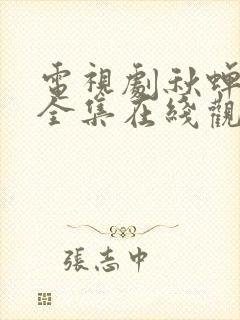 電視劇秋蟬
全集在綫觀
張志中